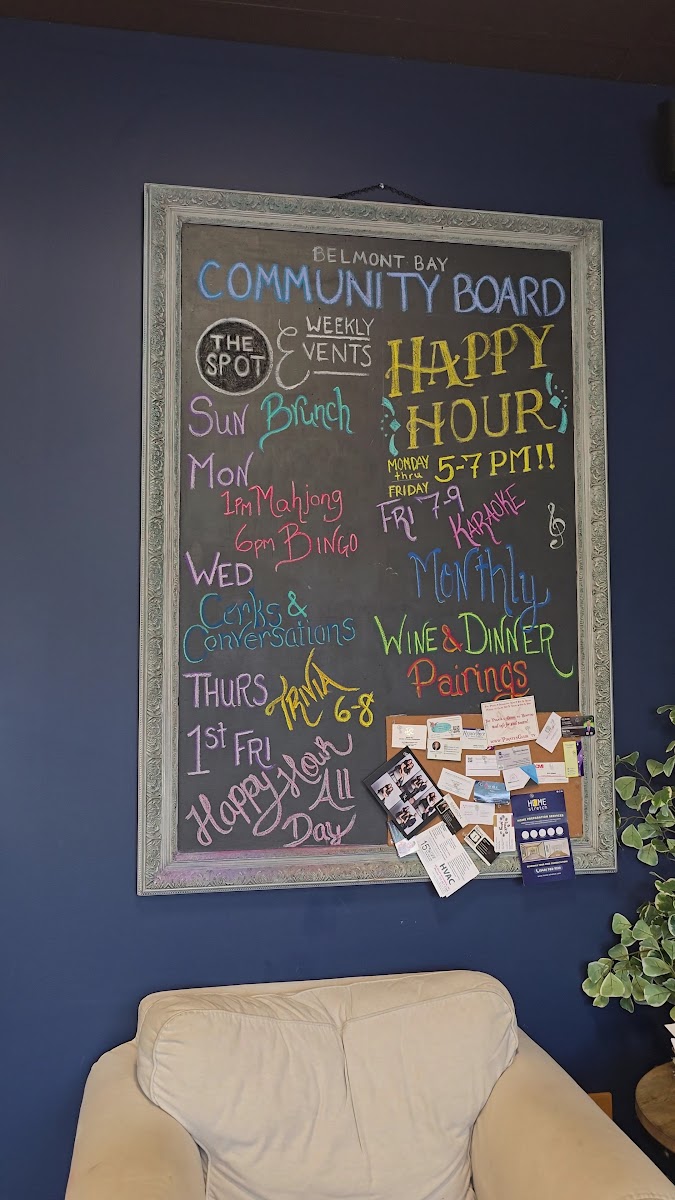 BELMONT BAY
COMMUNITY BOARD
THE
SPOT
WEEKLY
EVENTS
SUN Brunch
MON
1PM Mahjong
6pm BINGO
WED
Corks &
Conversations
THURS TRIVIA
6-8
1st FRI
Happy Hour
All
Day
HAPPY
HOUR
MONDAY
thru
FRIDAY
5-7 PM!!
FRI 7-9
KARAOKE
Monthly
WINE & DINNER
Pairings
HOME
HVAC